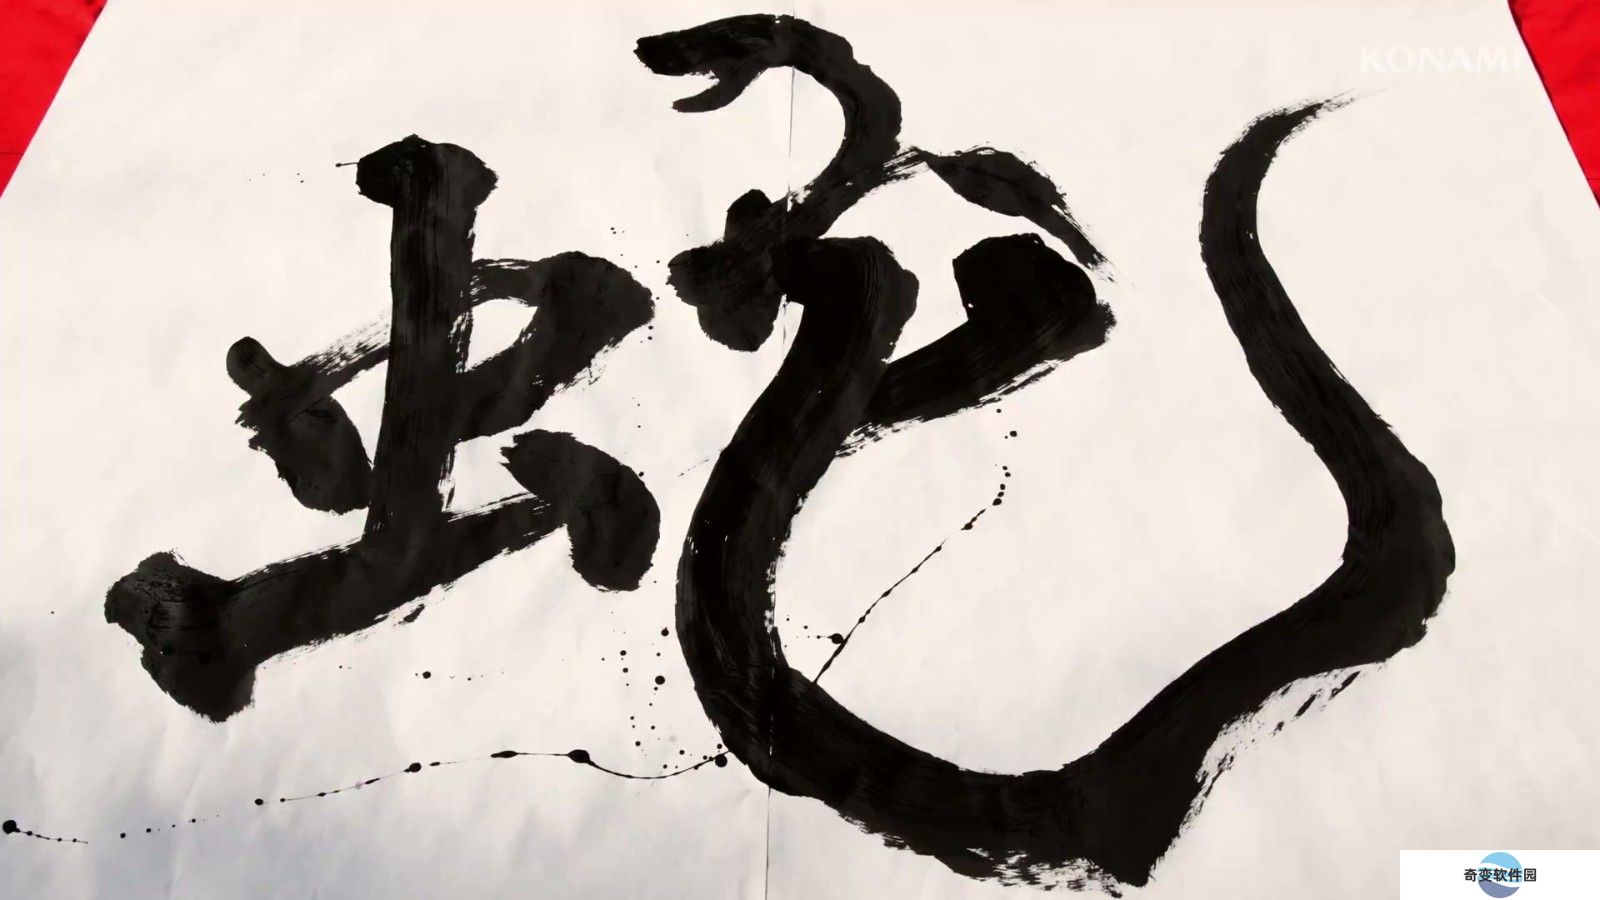 KONAMI
蛇
奇变软件园